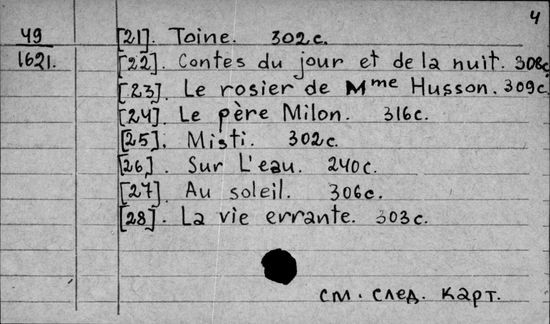 4
49
1621.
[21]. Toine. 302с.
[22]. Contes du jour et de la nuit. 308с.
[23]. Le rosier de Mme Husson. 309с.
[24]. Le père Milon. 316с.
[25]. Misti. 302с.
[26]. Sur L'eau. 240с.
[27]. Au soleil. 306с.
[28]. La vie errante. 303с.
см. след. карт.